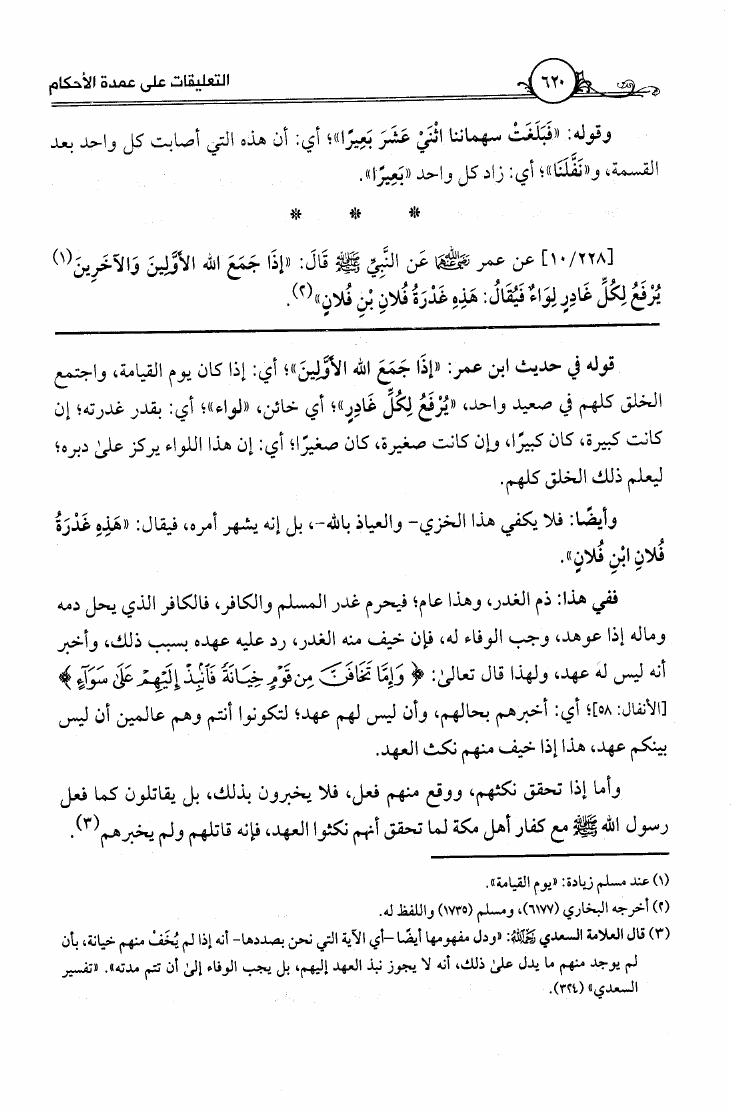 ٦٢٠
التعليقات على عمدة الأحكام
وقوله: «فَبَلَغَتْ سهماننا اثْنَيْ عَشَرَ بَعِيرًا»؛ أي: أن هذه التي أصابت كل واحد بعد
القسمة، و«نَفَّلَنَا»؛ أي: زاد كل واحد «بَعِيرًا».
* * *
[١٠/٢٢٨] عن عمر رضي الله عنهما عَن النَّبِيِّ ﷺ قَالَ: «إِذَا جَمَعَ الله الأَوَّلِينَ وَالآخَرِينَ(١)
يُرْفَعُ لِكُلِّ غَادِرٍ لِوَاءٌ فَيُقَالُ: هَذِهِ غَدْرَةُ فُلانِ بْنِ فُلانٍ»(٢).
قوله في حديث ابن عمر: «إِذَا جَمَعَ الله الأَوَّلِينَ»؛ أي: إذا كان يوم القيامة، واجتمع
الخلق كلهم في صعيد واحد، «يُرْفَعُ لِكُلِّ غَادِرٍ»؛ أي خائن، «لواء»؛ أي: بقدر غدرته؛ إن
كانت كبيرة، كان كبيرًا، وإن كانت صغيرة، كان صغيرًا؛ أي: إن هذا اللواء يركز علىٰ دبره؛
ليعلم ذلك الخلق كلهم.
وأيضًا: فلا يكفي هذا الخزي- والعياذ بالله-، بل إنه يشهر أمره، فيقال: «هَذِهِ غَدْرَةُ
فُلانِ ابْنِ فُلانٍ».
ففي هذا: ذم الغدر، وهذا عام؛ فيحرم غدر المسلم والكافر، فالكافر الذي يحل دمه
وماله إذا عوهد، وجب الوفاء له، فإن خيف منه الغدر، رد عليه عهده بسبب ذلك، وأخبر
أنه ليس له عهد، ولهذا قال تعالىٰ: ﴿ وَإِمَّا تَخَافَنَّ مِن قَوْمٍ خِيَانَةً فَانبِذْ إِلَيْهِمْ عَلَىٰ سَوَاءٍ ﴾
[الأنفال: ٥٨]؛ أي: أخبرهم بحالهم، وأن ليس لهم عهد؛ لتكونوا أنتم وهم عالمين أن ليس
بينكم عهد، هذا إذا خيف منهم نكث العهد.
وأما إذا تحقق نكثهم، ووقع منهم فعل، فلا يخبرون بذلك، بل يقاتلون كما فعل
رسول الله ﷺ مع كفار أهل مكة لما تحقق أنهم نكثوا العهد، فإنه قاتلهم ولم يخبرهم(٣).
(١) عند مسلم زيادة: «يوم القيامة».
(٢) أخرجه البخاري (٦١٧٧)، ومسلم (١٧٣٥) واللفظ له.
(٣) قال العلامة السعدي رحمه الله: «ودل مفهومها أيضًا –أي الآية التي نحن بصددها- أنه إذا لم يُخَفْ منهم خيانة، بأن
لم يوجد منهم ما يدل علىٰ ذلك، أنه لا يجوز نبذ العهد إليهم، بل يجب الوفاء إلىٰ أن تتم مدته». «تفسير
السعدي» (٣٢٤).